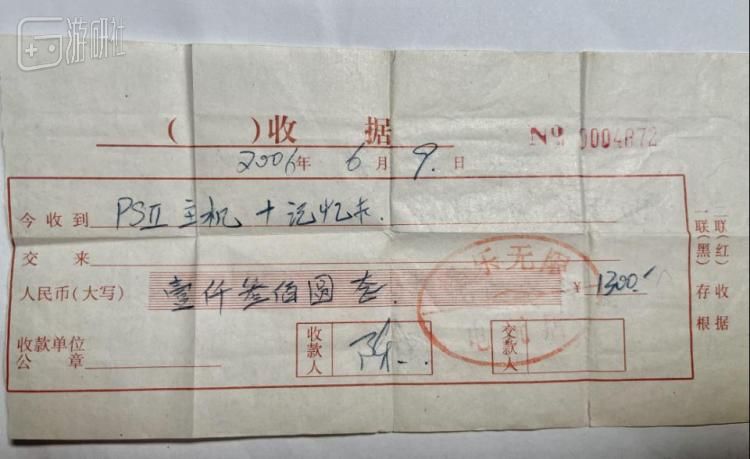 游研社
( )收 据
No 0004872
2006年 6月 9.日
今收到 PSII 主机 + 记忆卡.
交 来
人民币(大写) 壹仟叁佰圆 ¥ 1300.
收款单位
公 章
收款人
交款人
一联(黑)存根
二联(红)收据